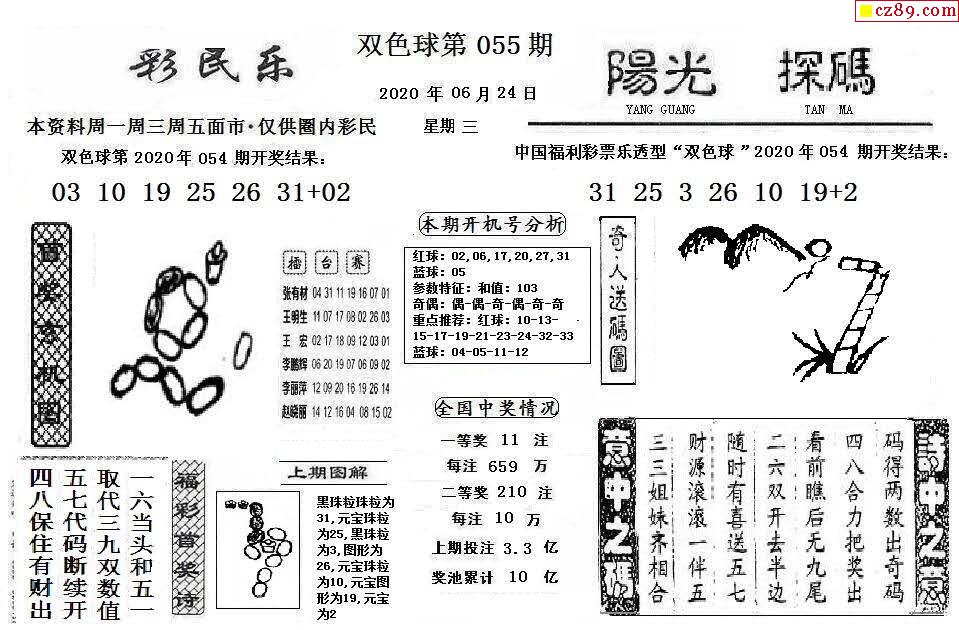 cz89.com
双色球第 055 期
彩民乐
陽光 探碼
YANG GUANG TAN MA
2020 年 06 月 24 日
本资料周一周三周五面市·仅供圈内彩民
星期 三
双色球第 2020 年 054 期开奖结果:
03 10 19 25 26 31+02
中国福利彩票乐透型“双色球”2020 年 054 期开奖结果:
31 25 3 26 10 19+2
首奖玄机图
擂 台 赛
张有材 04 31 11 19 16 07 01
王明生 11 07 17 08 02 26 03
王 宏 02 17 18 09 12 03 01
李鹏辉 06 20 19 07 06 09 02
李丽萍 12 09 20 16 19 26 14
赵晓丽 14 12 16 04 08 15 02
本期开机号分析
红球: 02,06,17,20,27,31
蓝球: 05
参数特征: 和值: 103
奇偶: 偶-偶-奇-偶-奇-奇
重点推荐: 红球: 10-13-
15-17-19-21-23-24-32-33
蓝球: 04-05-11-12
奇人送碼圖
全国中奖情况
一等奖 11 注
每注 659 万
二等奖 210 注
每注 10 万
上期投注 3.3 亿
奖池累计 10 亿
福彩首奖诗
一六当头和五一
取代三九双数值
五七代码断续开
四八保住有财出
上期图解
黑珠粒珠粒为
31,元宝珠粒
为25,黑珠粒
为3,图形为
26,元宝珠粒
为10,元宝图
形为19,元宝
为2
詩中乙意
码得两数出奇码
四八合力把奖出
看前瞧后无九尾
二六双开去半边
随时有喜送五七
财源滚滚一伴五
三三姐妹齐相合
意中乙碼